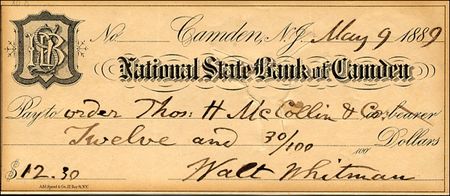 No. Camden, N.J. May 9 1889
National State Bank of Camden
Pay to order Thos: H McCollin & Co. or bearer
Twelve and 30/100 Dollars
$12.30 Walt Whitman